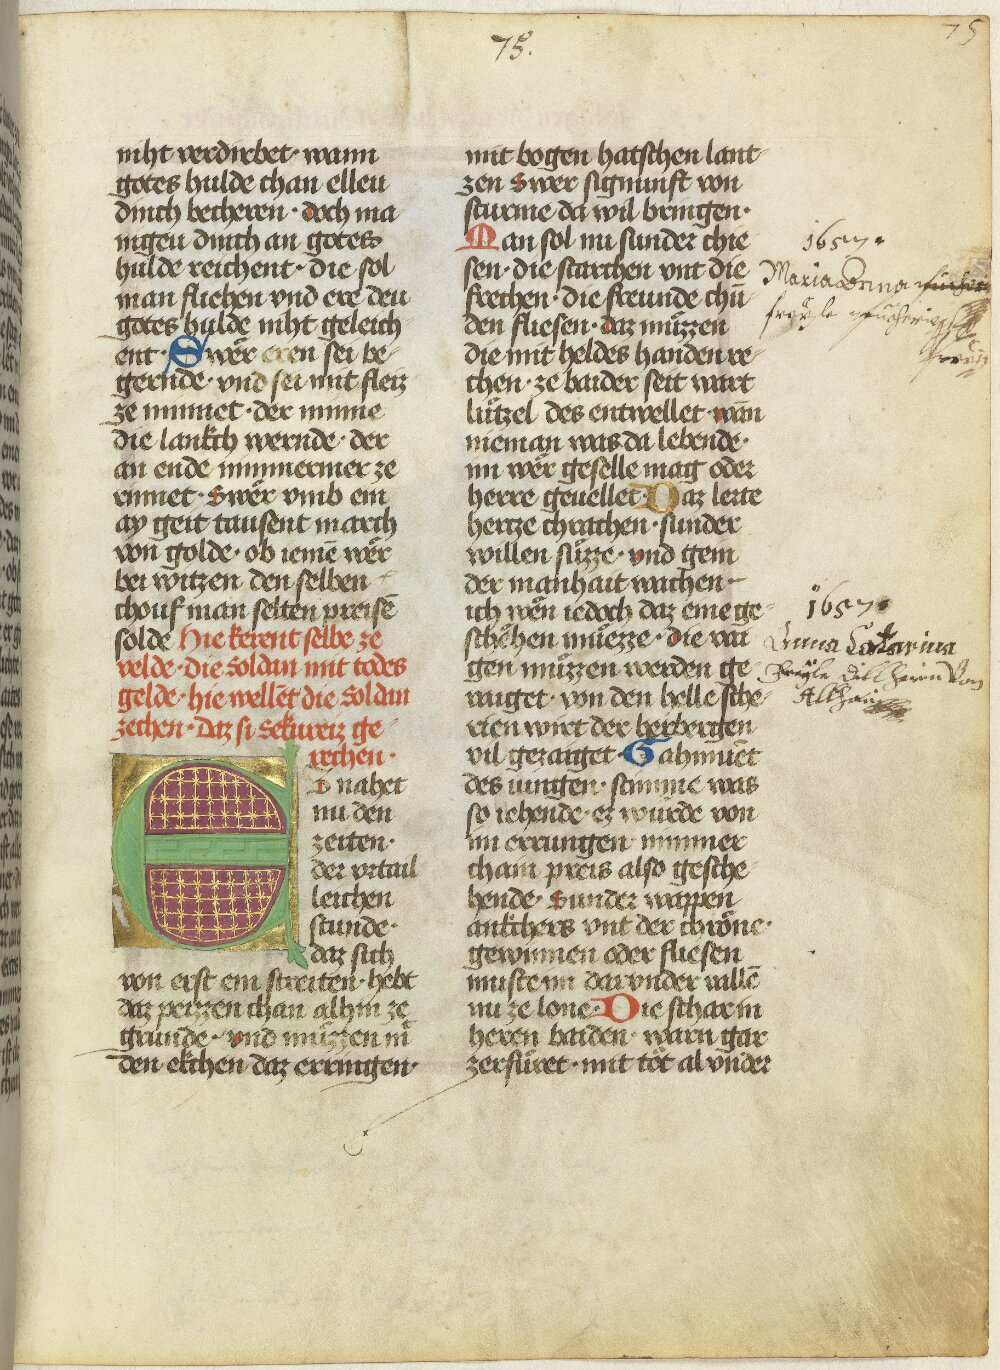 75.
75
niht verdirbet· wann
gotes hulde chan elleu
dinch becheren· doch ma
nigeu dinch an gotes
hulde reichent· die sol
man fliehen vnd ere den
gotes hulde niht geleich
ent· Swer eren sei be
gernde· vnd sei mit fleiz
ze minnet· der minne
die lankch wernde· der
an ende nimmermer ze
rinnet· Swër vmb ein
ay geit tausent march
von golde· ob iemē wër
bei witzen den selben
chouf man selten preisē
solde Hie kerent selbe ze
velde· die Soldan mit todes
gelde· hie wellēt die Soldan
zechen· daz si Sekureiz ge
rechen·
Ez nahet
nu den
zeiten·
der vrtail
leichen
stunde·
daz sich
von erst ein streiten· hebt
daz peizzen chan alhin ze
grunde· vnd müzzen in
den ekchen daz erringen·
mit bogen hatschen lant
zen Swer sigmunft von
sturme da wil bringen·
Man sol nu sunder chie
sen· die starchen vnt die
frechen· die freunde chü
den fliesen· daz müzzen
die mit heldes handen re
chen· ze baider seit wart
lützel des entwellet· wān
nieman was da lebende·
im wër geselle mag oder
herre geuellet· Daz lerte
hertze chrachen· sunder
willen süzze· vnd gein
der manhait wachen·
ich wën iedoch daz eine ge
schëhen müezze· die vāi
gen müzzen werden ge
wuget· von den helle sche
rten wirt der herbergen
vil gezaiget· Gahmuet
des iungen· stimme was
so iehende· ez wurde von
im errungen nimmer
chain preis also gesche
hende· Sunder wappen
ankchers vnt der chröne·
gewinnen oder fliesen
muste im dar vnder willē
nu ze lone· Die schar in
heren baiden· warn gar
zerfüret· mit töt al vnder
1657·
Maria Anna
freyle
1657·
Anna Catarina
freyle Dillherin Von
Althan